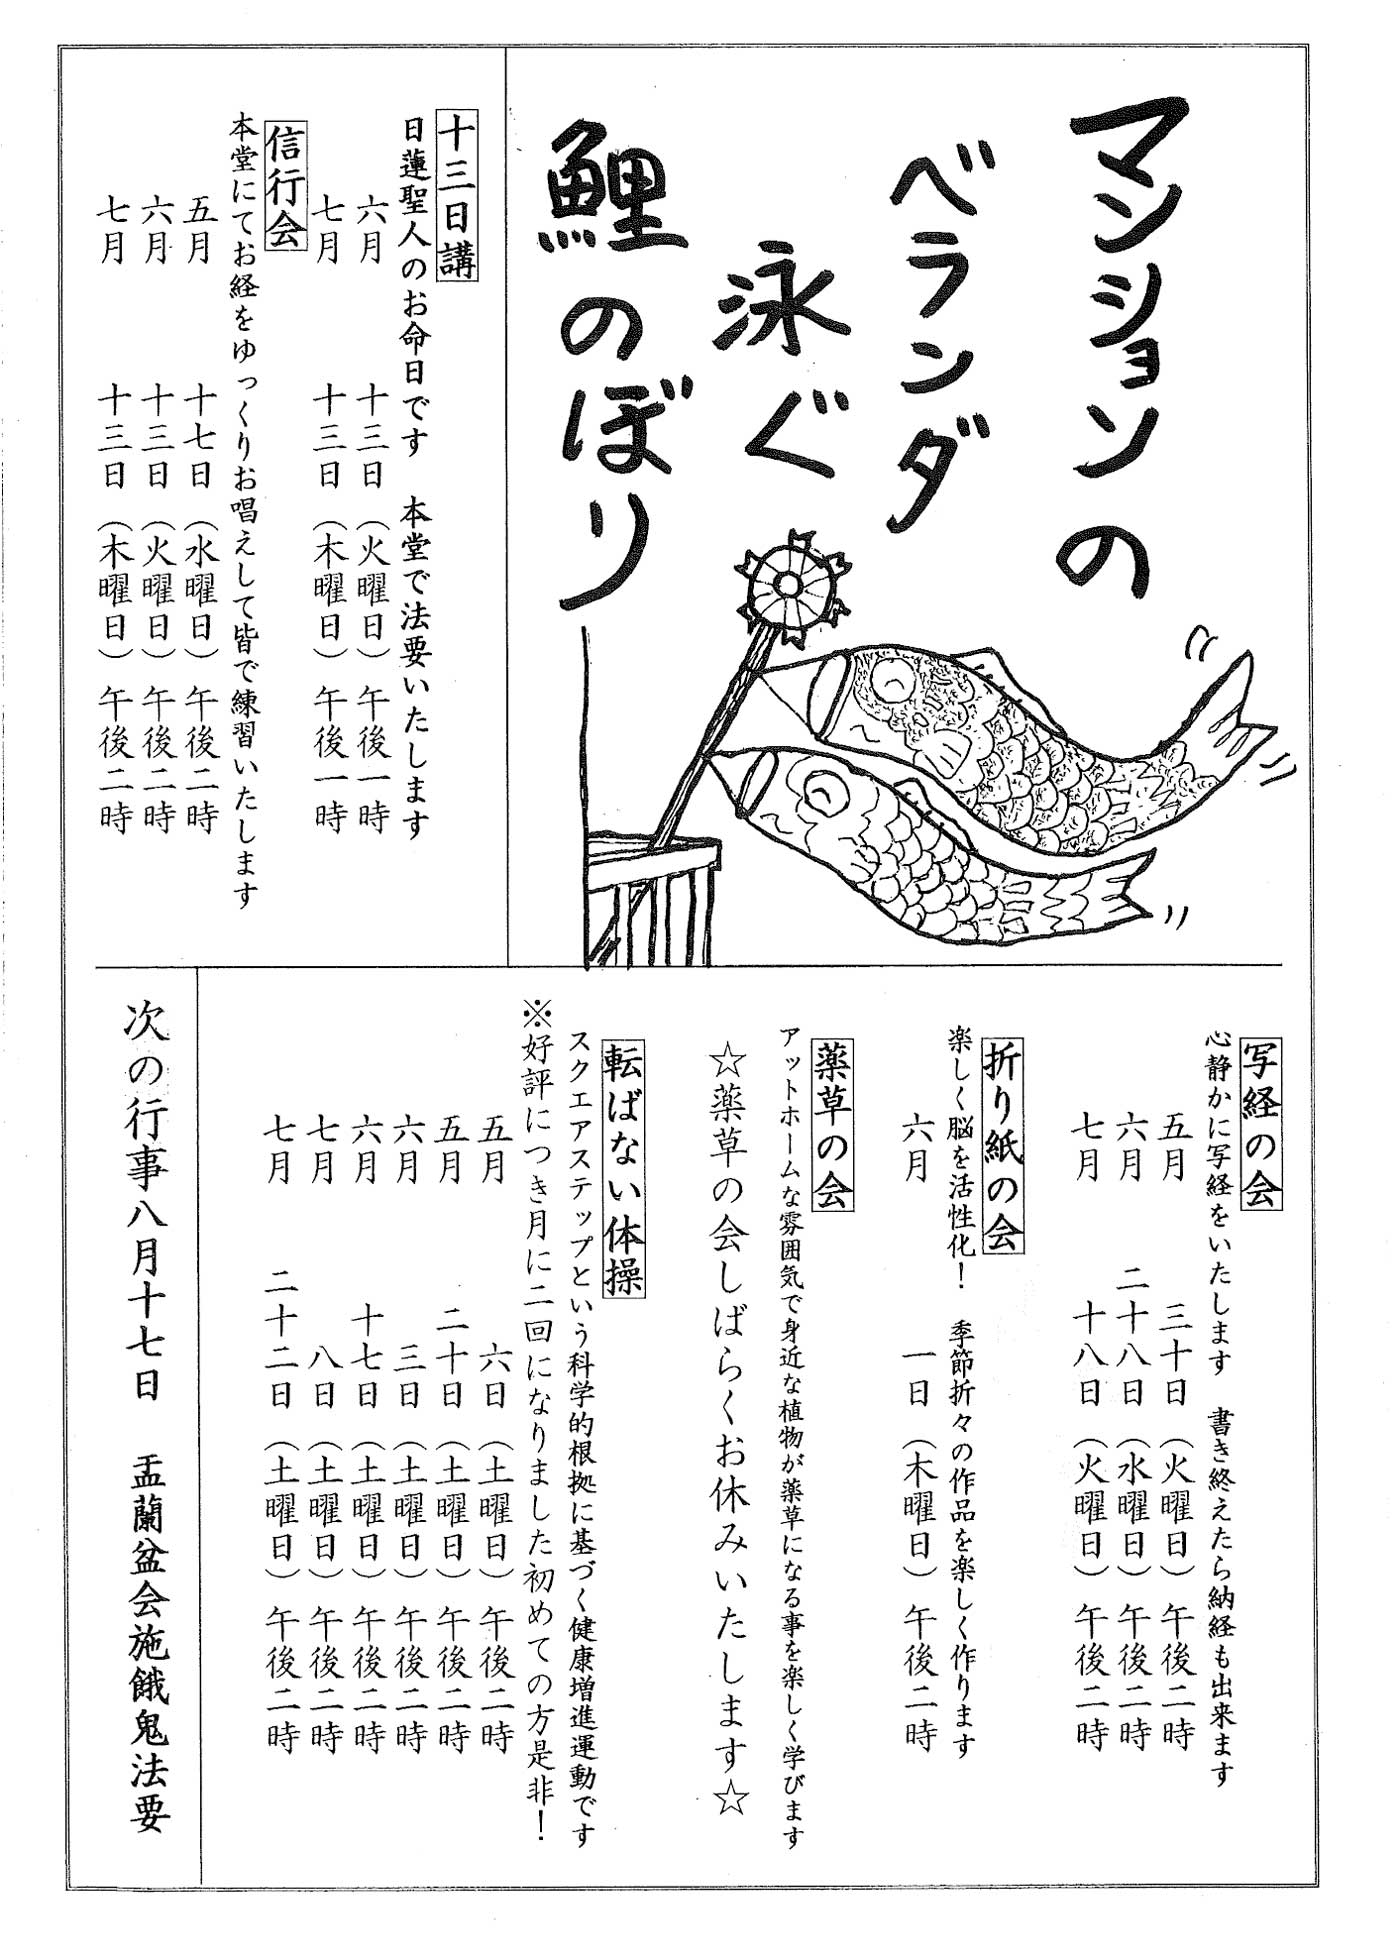 マンションの
ベランダ
泳ぐ
鯉のぼり
十三日講
日蓮聖人のお命日です　本堂で法要いたします
六月　十三日（火曜日）午後一時
七月　十三日（木曜日）午後一時
信行会
本堂にてお経をゆっくりお唱えして皆で練習いたします
五月　十七日（水曜日）午後二時
六月　十三日（火曜日）午後二時
七月　十三日（木曜日）午後二時
写経の会
心静かに写経をいたします　書き終えたら納経も出来ます
五月　三十日（火曜日）午後二時
六月　二十八日（水曜日）午後二時
七月　十八日（火曜日）午後二時
折り紙の会
楽しく脳を活性化！　季節折々の作品を楽しく作ります
六月　一日（木曜日）午後二時
薬草の会
アットホームな雰囲気で身近な植物が薬草になる事を楽しく学びます
☆薬草の会しばらくお休みいたします☆
転ばない体操
スクエアステップという科学的根拠に基づく健康増進運動です
※好評につき月に二回になりました初めての方是非！
五月　六日（土曜日）午後二時
五月　二十日（土曜日）午後二時
六月　三日（土曜日）午後二時
六月　十七日（土曜日）午後二時
七月　八日（土曜日）午後二時
七月　二十二日（土曜日）午後二時
次の行事八月十七日　盂蘭盆会施餓鬼法要